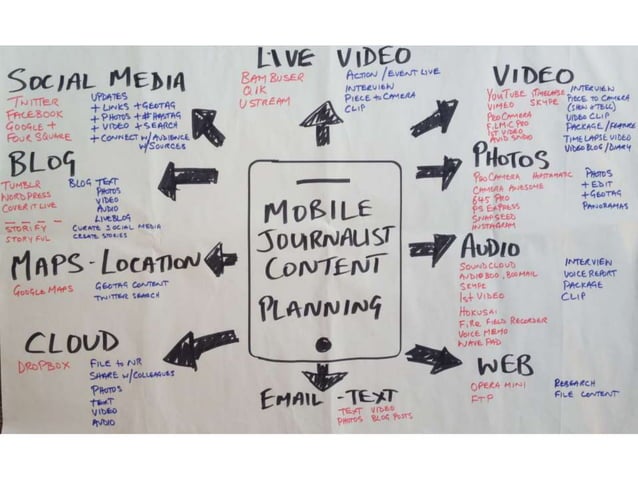 LIVE VIDEO
BAMBUSER
QIK
USTREAM
ACTION/EVENT LIVE
INTERVIEW
PIECE TO CAMERA
CLIP
SOCIAL MEDIA
TWITTER
FACEBOOK
GOOGLE+
FOUR SQUARE
UPDATES
+ LINKS + GEOTAG
+ PHOTOS + #HASTAG
+ VIDEO + SEARCH
+ CONNECT W/AUDIENCE
W/SOURCES
BLOG
TUMBLR
WORDPRESS
COVER IT LIVE
STORIFY
STORYFUL
BLOG TEXT
PHOTOS
VIDEO
AUDIO
LIVEBLOG
CURATE SOCIAL MEDIA
CREATE STORIES
MAPS - LOCATION
GOOGLE MAPS
GEOTAG CONTENT
TWITTER SEARCH
CLOUD
DROPBOX
FILE TO NR
SHARE W/COLLEAGUES
PHOTOS
TEXT
VIDEO
AUDIO
MOBILE
JOURNALIST
CONTENT
PLANNING
EMAIL - TEXT
TEXT VIDEO
PHOTOS BLOG POSTS
VIDEO
YOUTUBE TIMELAPSE
VIMEO SKYPE
PROCAMERA
FILMIC PRO
1ST VIDEO
AVID STUDIO
INTERVIEW
PIECE TO CAMERA
(SHOW & TELL)
VIDEO CLIP
PACKAGE/FEATURE
TIMELAPSE VIDEO
VIDEO BLOG/DIARY
PHOTOS
PRO CAMERA HIPSTAMATIC
CAMERA AWESOME
645 PRO
PS EXPRESS
SNAPSEED
INSTAGRAM
PHOTOS
+ EDIT
+ GEOTAG
PANORAMAS
AUDIO
SOUNDCLOUD
AUDIOBOO, BOOMAIL
SKYPE
1ST VIDEO
HOKUSAI
FIRE FIELD RECORDER
VOICE MEMO
WAVE PAD
INTERVIEW
VOICE REPORT
PACKAGE
CLIP
WEB
OPERA MINI
FTP
RESEARCH
FILE CONTENT